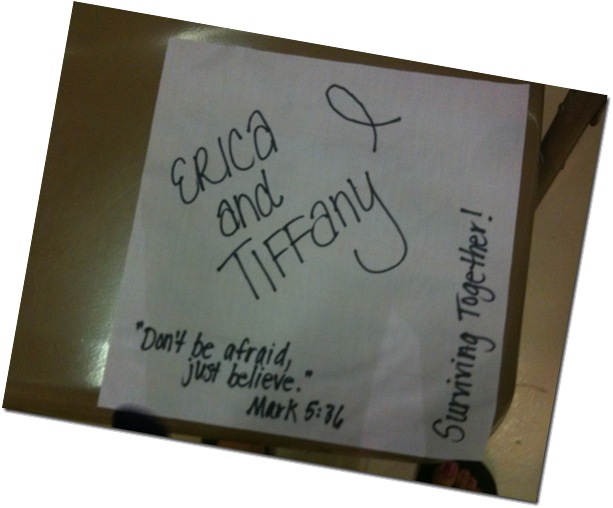 ERICA
and
TIFFany
"Don't be afraid,
just believe."
Mark 5:36
Surviving Together!